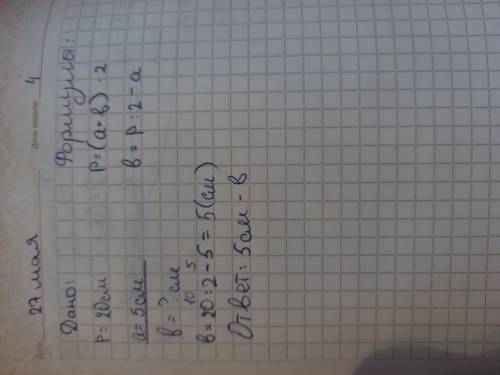 Дата 27 мая День недели 4
Дано: Формулы:
P = 20см P = (а + в) · 2
а = 5см в = P : 2 - а
в = ? см
10 5
в = 20 : 2 - 5 = 5 (см)
Ответ: 5см - в